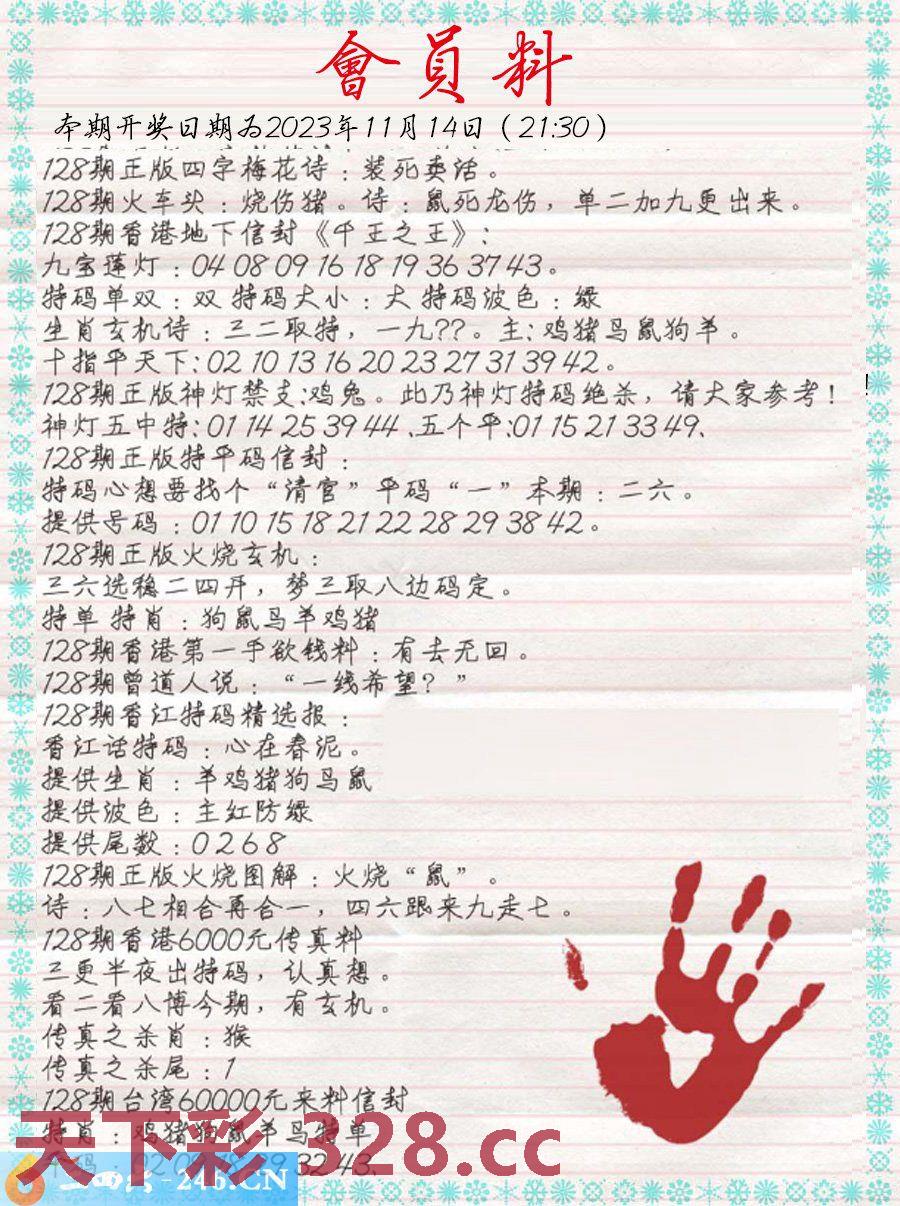 會員料
本期开奖日期为2023年11月14日（21:30）
128期正版四字梅花诗：装死卖活。
128期火车头：烧伤猪。诗：鼠死龙伤，单二加九更出来。
128期香港地下信封《千王之王》：
九宝莲灯：04 08 09 16 18 19 36 37 43。
特码单双：双 特码大小：大 特码波色：绿
生肖玄机诗：三二取特，一九??。主：鸡猪马鼠狗羊。
十指平天下：02 10 13 16 20 23 27 31 39 42。
128期正版神灯禁支:鸡兔。此乃神灯特码绝杀，请大家参考！
神灯五中特：01 14 25 39 44、五个平:01 15 21 33 49、
128期正版特平码信封：
特码心想要找个“清官”平码“一”本期：二六。
提供号码：01 10 15 18 21 22 28 29 38 42。
128期正版火烧玄机：
三六选稳二四开，梦三取八边码定。
特单 特肖：狗鼠马羊鸡猪
128期香港第一手欲钱料：有去无回。
128期曾道人说：“一线希望？”
128期香江特码精选报：
香江话特码：心在春泥。
提供生肖：羊鸡猪狗马鼠
提供波色：主红防绿
提供尾数：0 2 6 8
128期正版火烧图解：火烧“鼠”。
诗：八七相合再合一，四六跟来九走七。
128期香港6000元传真料
三更半夜出特码，认真想。
看二看八博今期，有玄机。
传真之杀肖：猴
传真之杀尾：1
128期台湾60000元来料信封
特肖：鸡猪狗鼠羊马特单
32 43、
天下彩 328.cc
二四六-246.CN